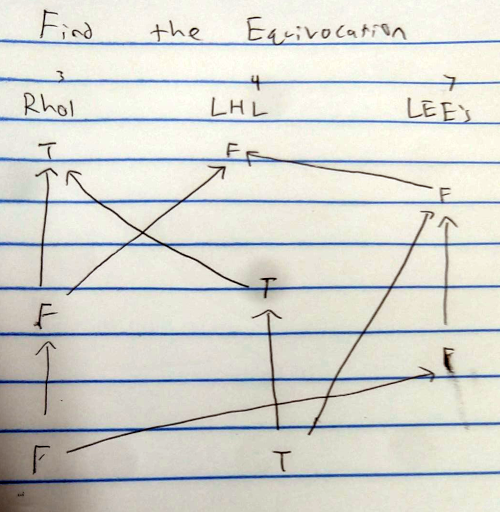 Find the Equivocation
3 4 7
Rhol LHL LEE's
T F
F
T
F
F
F T